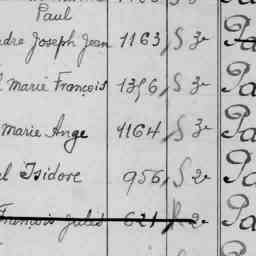 Paul
dre Joseph Jean 1163 S 3e Pa
Marie François 1396 S 3e Pa
Marie Ange 1164 S 3e Pa
el Isidore 956 S 2e Pa
François Jules 621 R 2e Pa